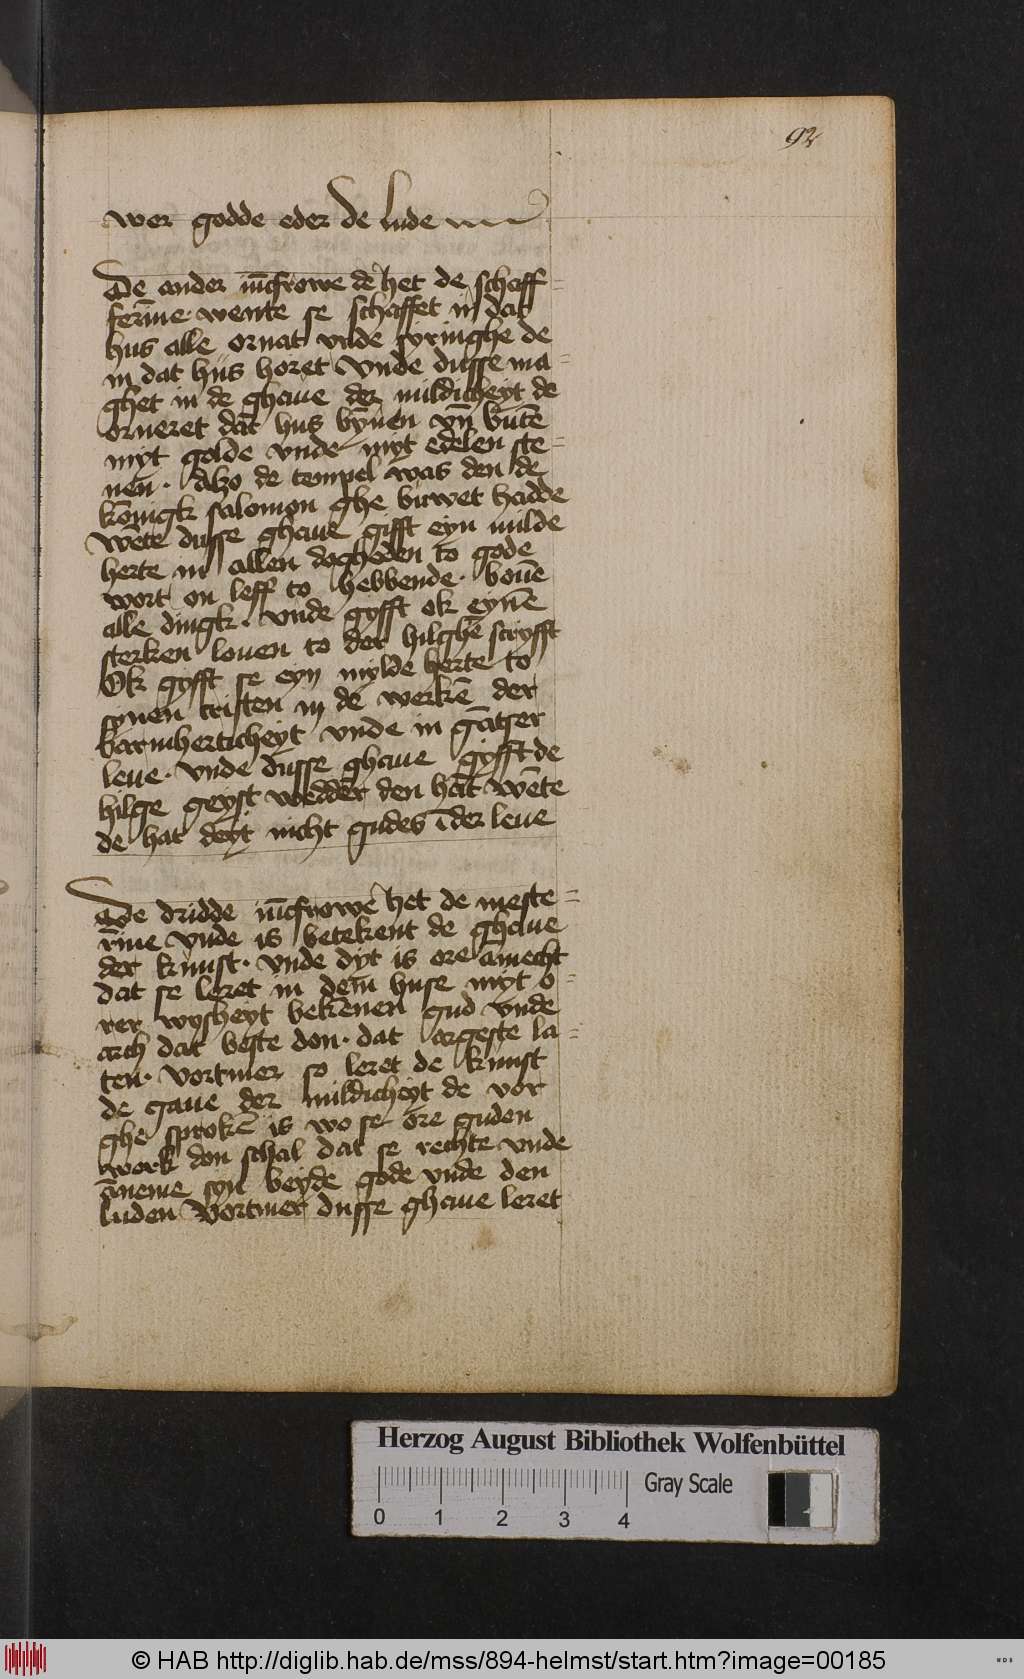 92
wer godde eder de lude
De ander iūcfrowe de het de schaff=
ferīne· wente se schaffet in dat
hus alle ornat vnde syringhe de
in dat hus horet Vnde dusse ma=
ghet in de ghaue der mildicheyt de
orneret dat hus bynen vn̄ butē
myt golde vnde myt edelen ste=
nen· Also de tempel was den de
kōnigk salomon ghe buwet hadde
wēte dusse ghaue gifft eyn milde
herte in allen dogheden to gode
wort on leff to hebbende· bouē
alle dingk· vnde gyfft ok eynē
sterken louen to der hilghē scryfft
Ok gyfft se eyn mylde herte to
synen cristen in de werkē der
barmherticheyt vnde in gātser
leue· vnde dusse ghaue gyfft de
hilge geyst wedder den hat wēte
de hat deyt nicht gudes īder leue
De dridde iūcfrowe het de meste=
rīne vnde is betekent de ghaue
der kunst· vnde dyt is ore amecht
dat se leret in dem huse myt o=
rer wysheyt bekēnen gud vnde
arch dat beste don· dat argeste la=
ten· vortmer so leret de kunst
de gaue der mildicheyt de vor
ghe sprokē is wo se ore guden
werk don schal dat se rechte vnde
āneme syn beyde gode vnde den
luden Vortmer dusse ghaue leret
Herzog August Bibliothek Wolfenbüttel
0 1 2 3 4 Gray Scale
© HAB http://diglib.hab.de/mss/894-helmst/start.htm?image=00185